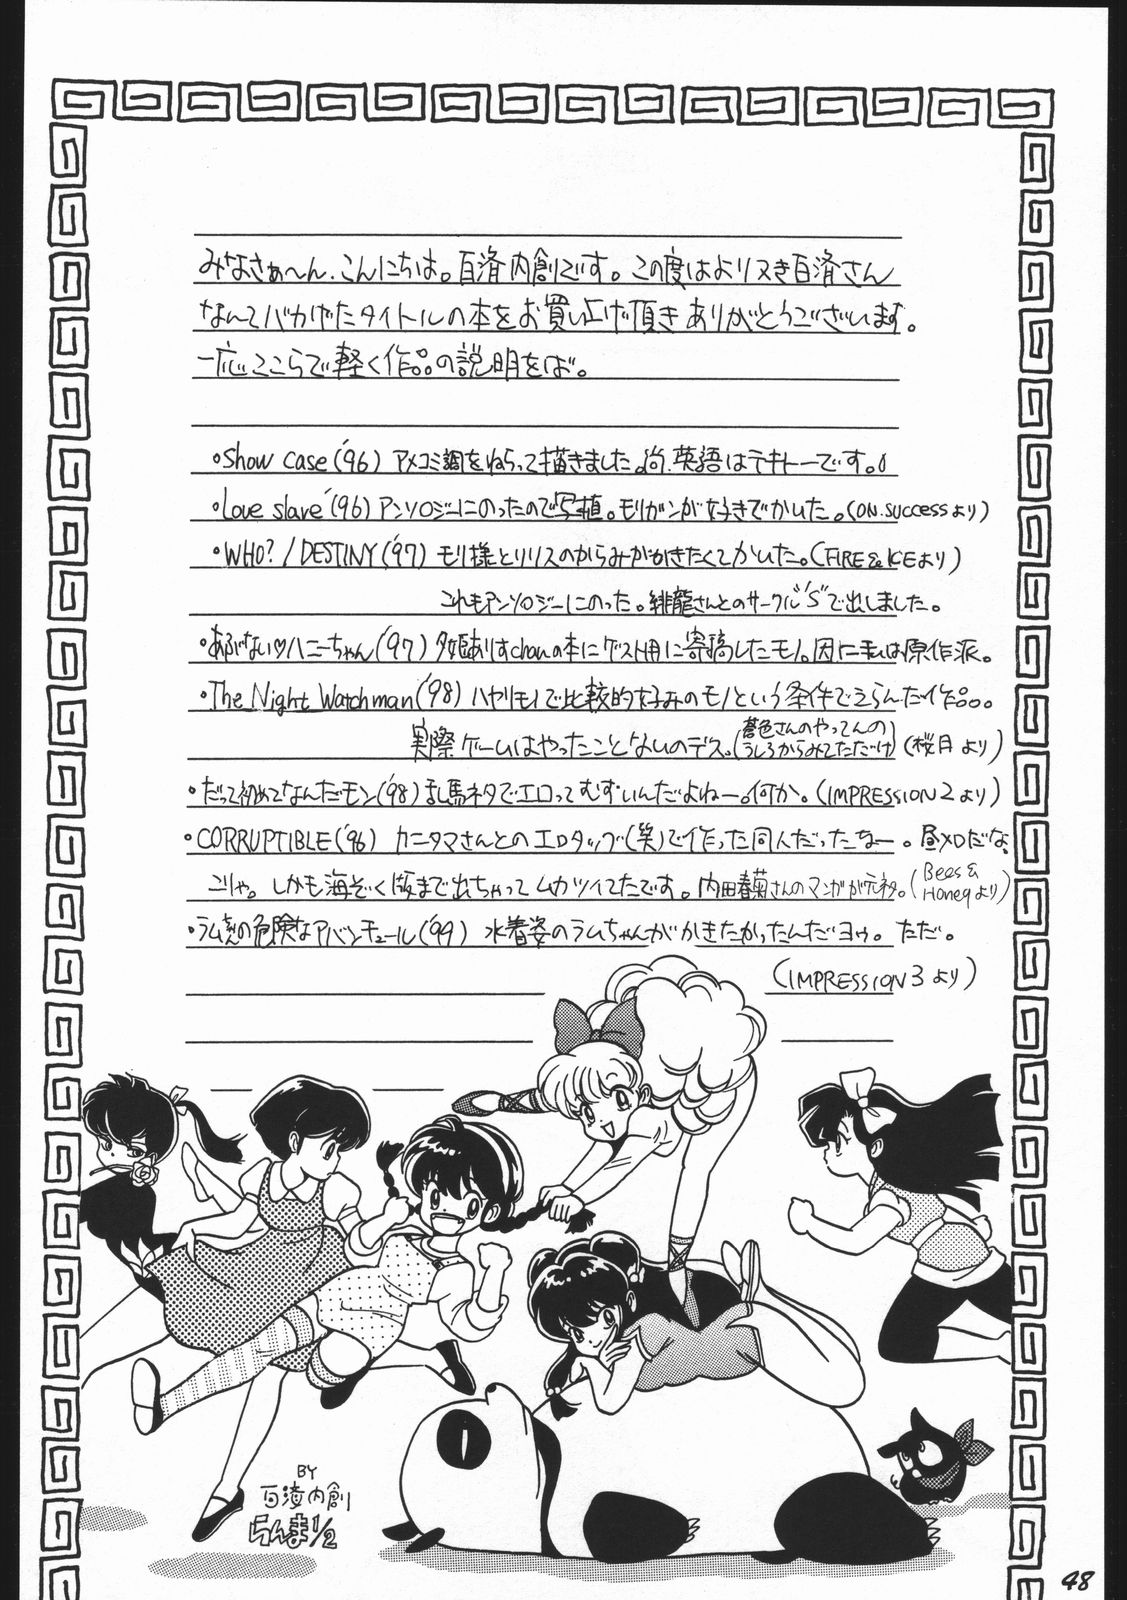 みなさぁ〜ん、こんにちは。百済内創です。この度はよりヌき百済さん
なんてバカげたタイトルの本をお買い上げ頂きありがとうございます。
一応ここらで軽く作品の説明をば。
・Show case ('96) アメコミ調をねらって描きました。尚、英語はテキトーです。
・Love slave ('96) アンソロジーにのったので写植。モリガンが好きでかいた。(ON.SUCCESSより)
・WHO? / DESTINY ('97) モリ様とリリスのからみがかきたくてかいた。(FIRE & ICEより)
これもアンソロジーにのった。緋龍さんとのサークル"S"で出しました。
・あぶない♡ハニーちゃん ('97) 夕姫ありすchanの本にゲスト用に寄稿したモノ。因に私は原作派。
・The Night Watchman ('98) ハヤリモノで比較的好みのモノという条件でえらんだ作品。
実際ゲームはやったことないのデス。(蒼色さんのやってんの
うしろからみてただけ) (桜月より)
・だって初めてなんだモン ('98) 乱馬ネタでエロってむずいんだよねー。何か。(IMPRESSION 2より)
・CORRUPTIBLE ('96) カニタマさんとのエロタッグ(笑)で作った同人だったなー。昼メロだな、
こりゃ。しかも海ぞく版まで出ちゃってムカツイてたです。内田春菊さんのマンガが元ネタ。(Bees &
Honeyより)
・ラムちゃんの危険なアバンチュール ('99) 水着姿のラムちゃんがかきたかったんだヨゥ。ただ。
(IMPRESSION 3より)
BY
百済内創
らんま1/2
48